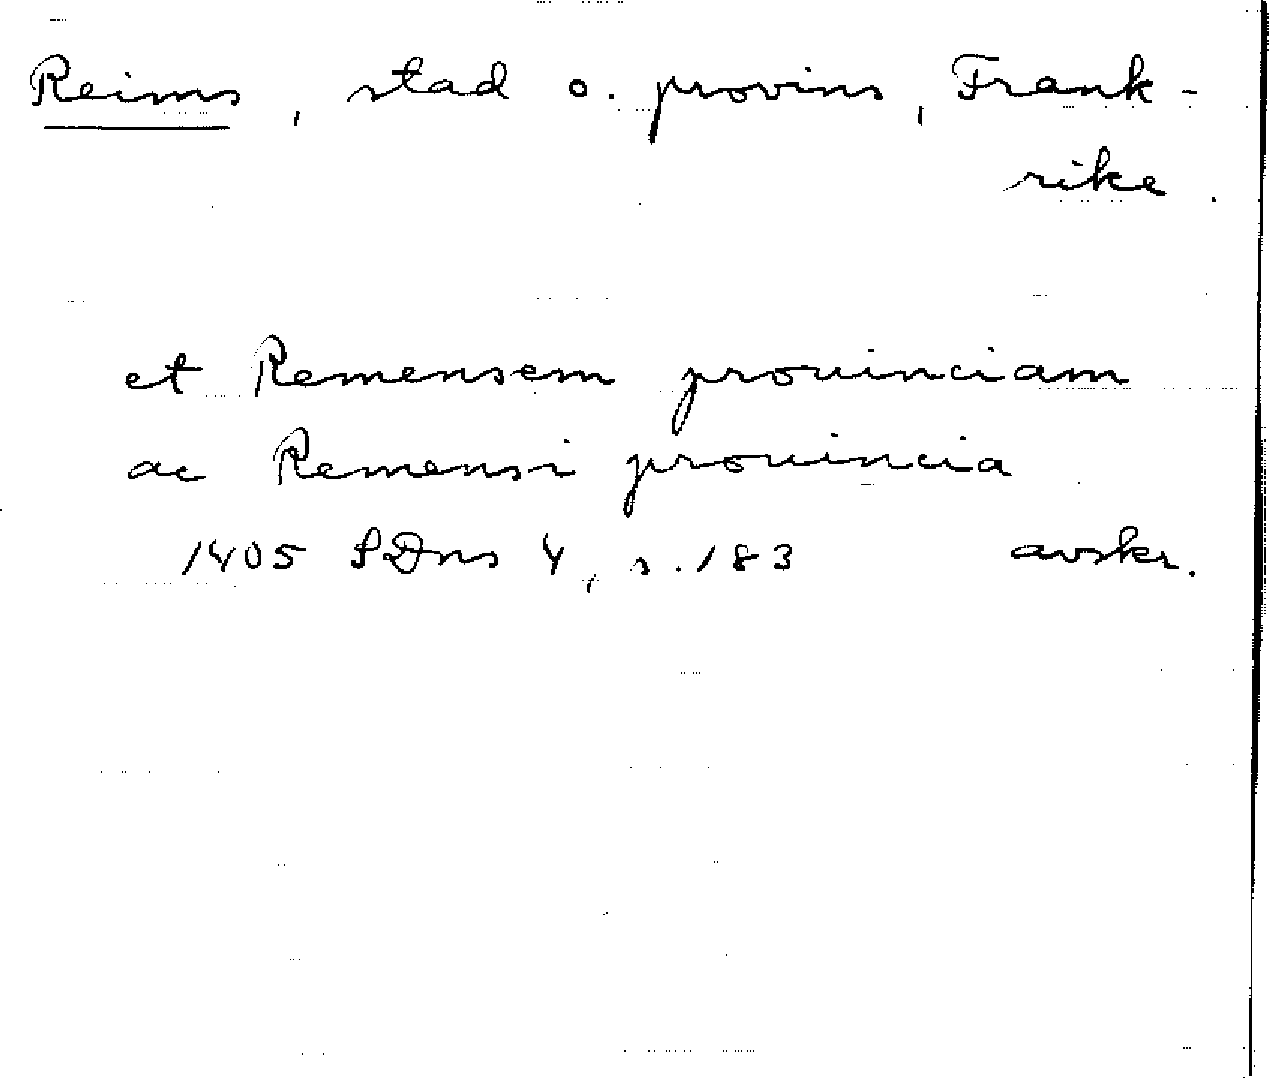 Reims, stad o. provins, Frank-
rike.
et Remensem prouinciam
ac Remensi prouincia
1405 SDns 4, s. 183 avskr.